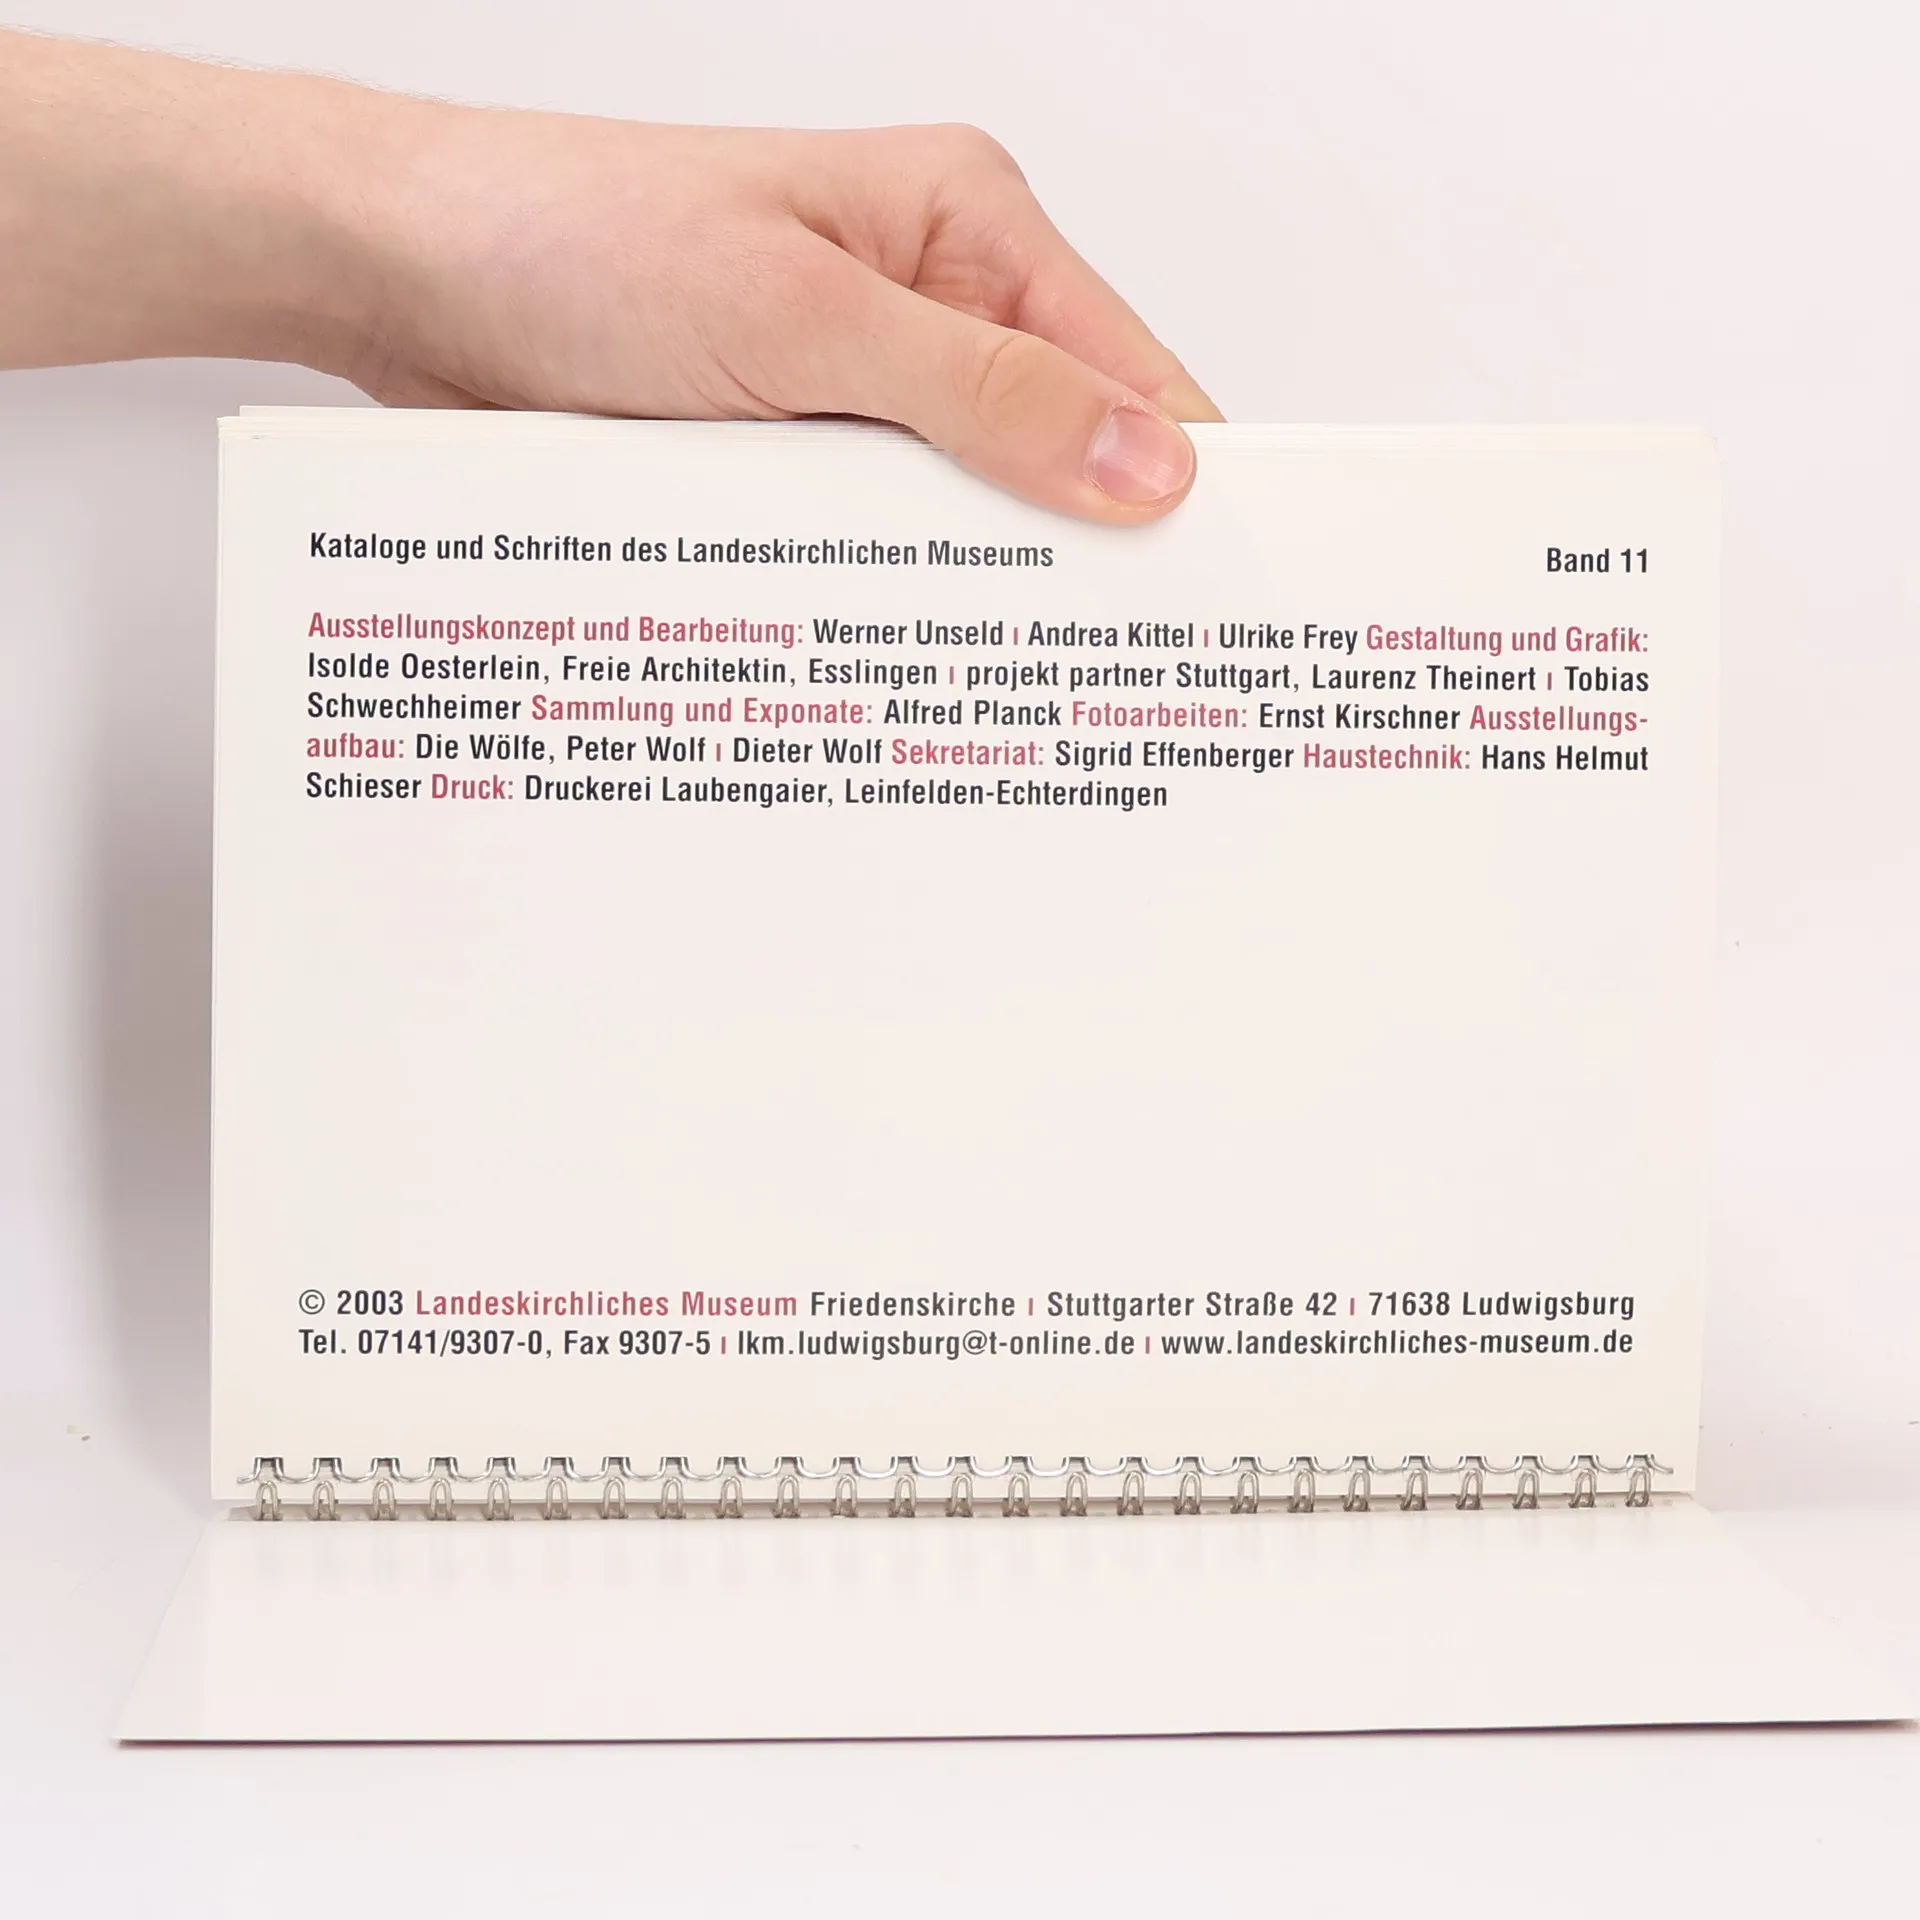 Kataloge und Schriften des Landeskirchlichen Museums Band 11
Ausstellungskonzept und Bearbeitung: Werner Unseld ı Andrea Kittel ı Ulrike Frey Gestaltung und Grafik:
Isolde Oesterlein, Freie Architektin, Esslingen ı projekt partner Stuttgart, Laurenz Theinert ı Tobias
Schwechheimer Sammlung und Exponate: Alfred Planck Fotoarbeiten: Ernst Kirschner Ausstellungs-
aufbau: Die Wölfe, Peter Wolf ı Dieter Wolf Sekretariat: Sigrid Effenberger Haustechnik: Hans Helmut
Schieser Druck: Druckerei Laubengaier, Leinfelden-Echterdingen
© 2003 Landeskirchliches Museum Friedenskirche ı Stuttgarter Straße 42 ı 71638 Ludwigsburg
Tel. 07141/9307-0, Fax 9307-5 ı lkm.ludwigsburg@t-online.de ı www.landeskirchliches-museum.de